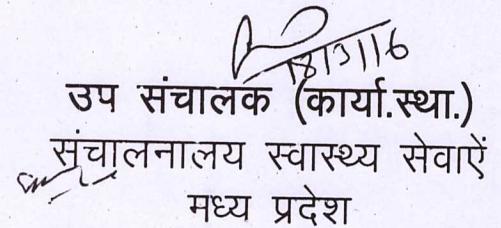 18/3/16
उप संचालक (कार्या.स्था.)
संचालनालय स्वास्थ्य सेवाऐं
मध्य प्रदेश